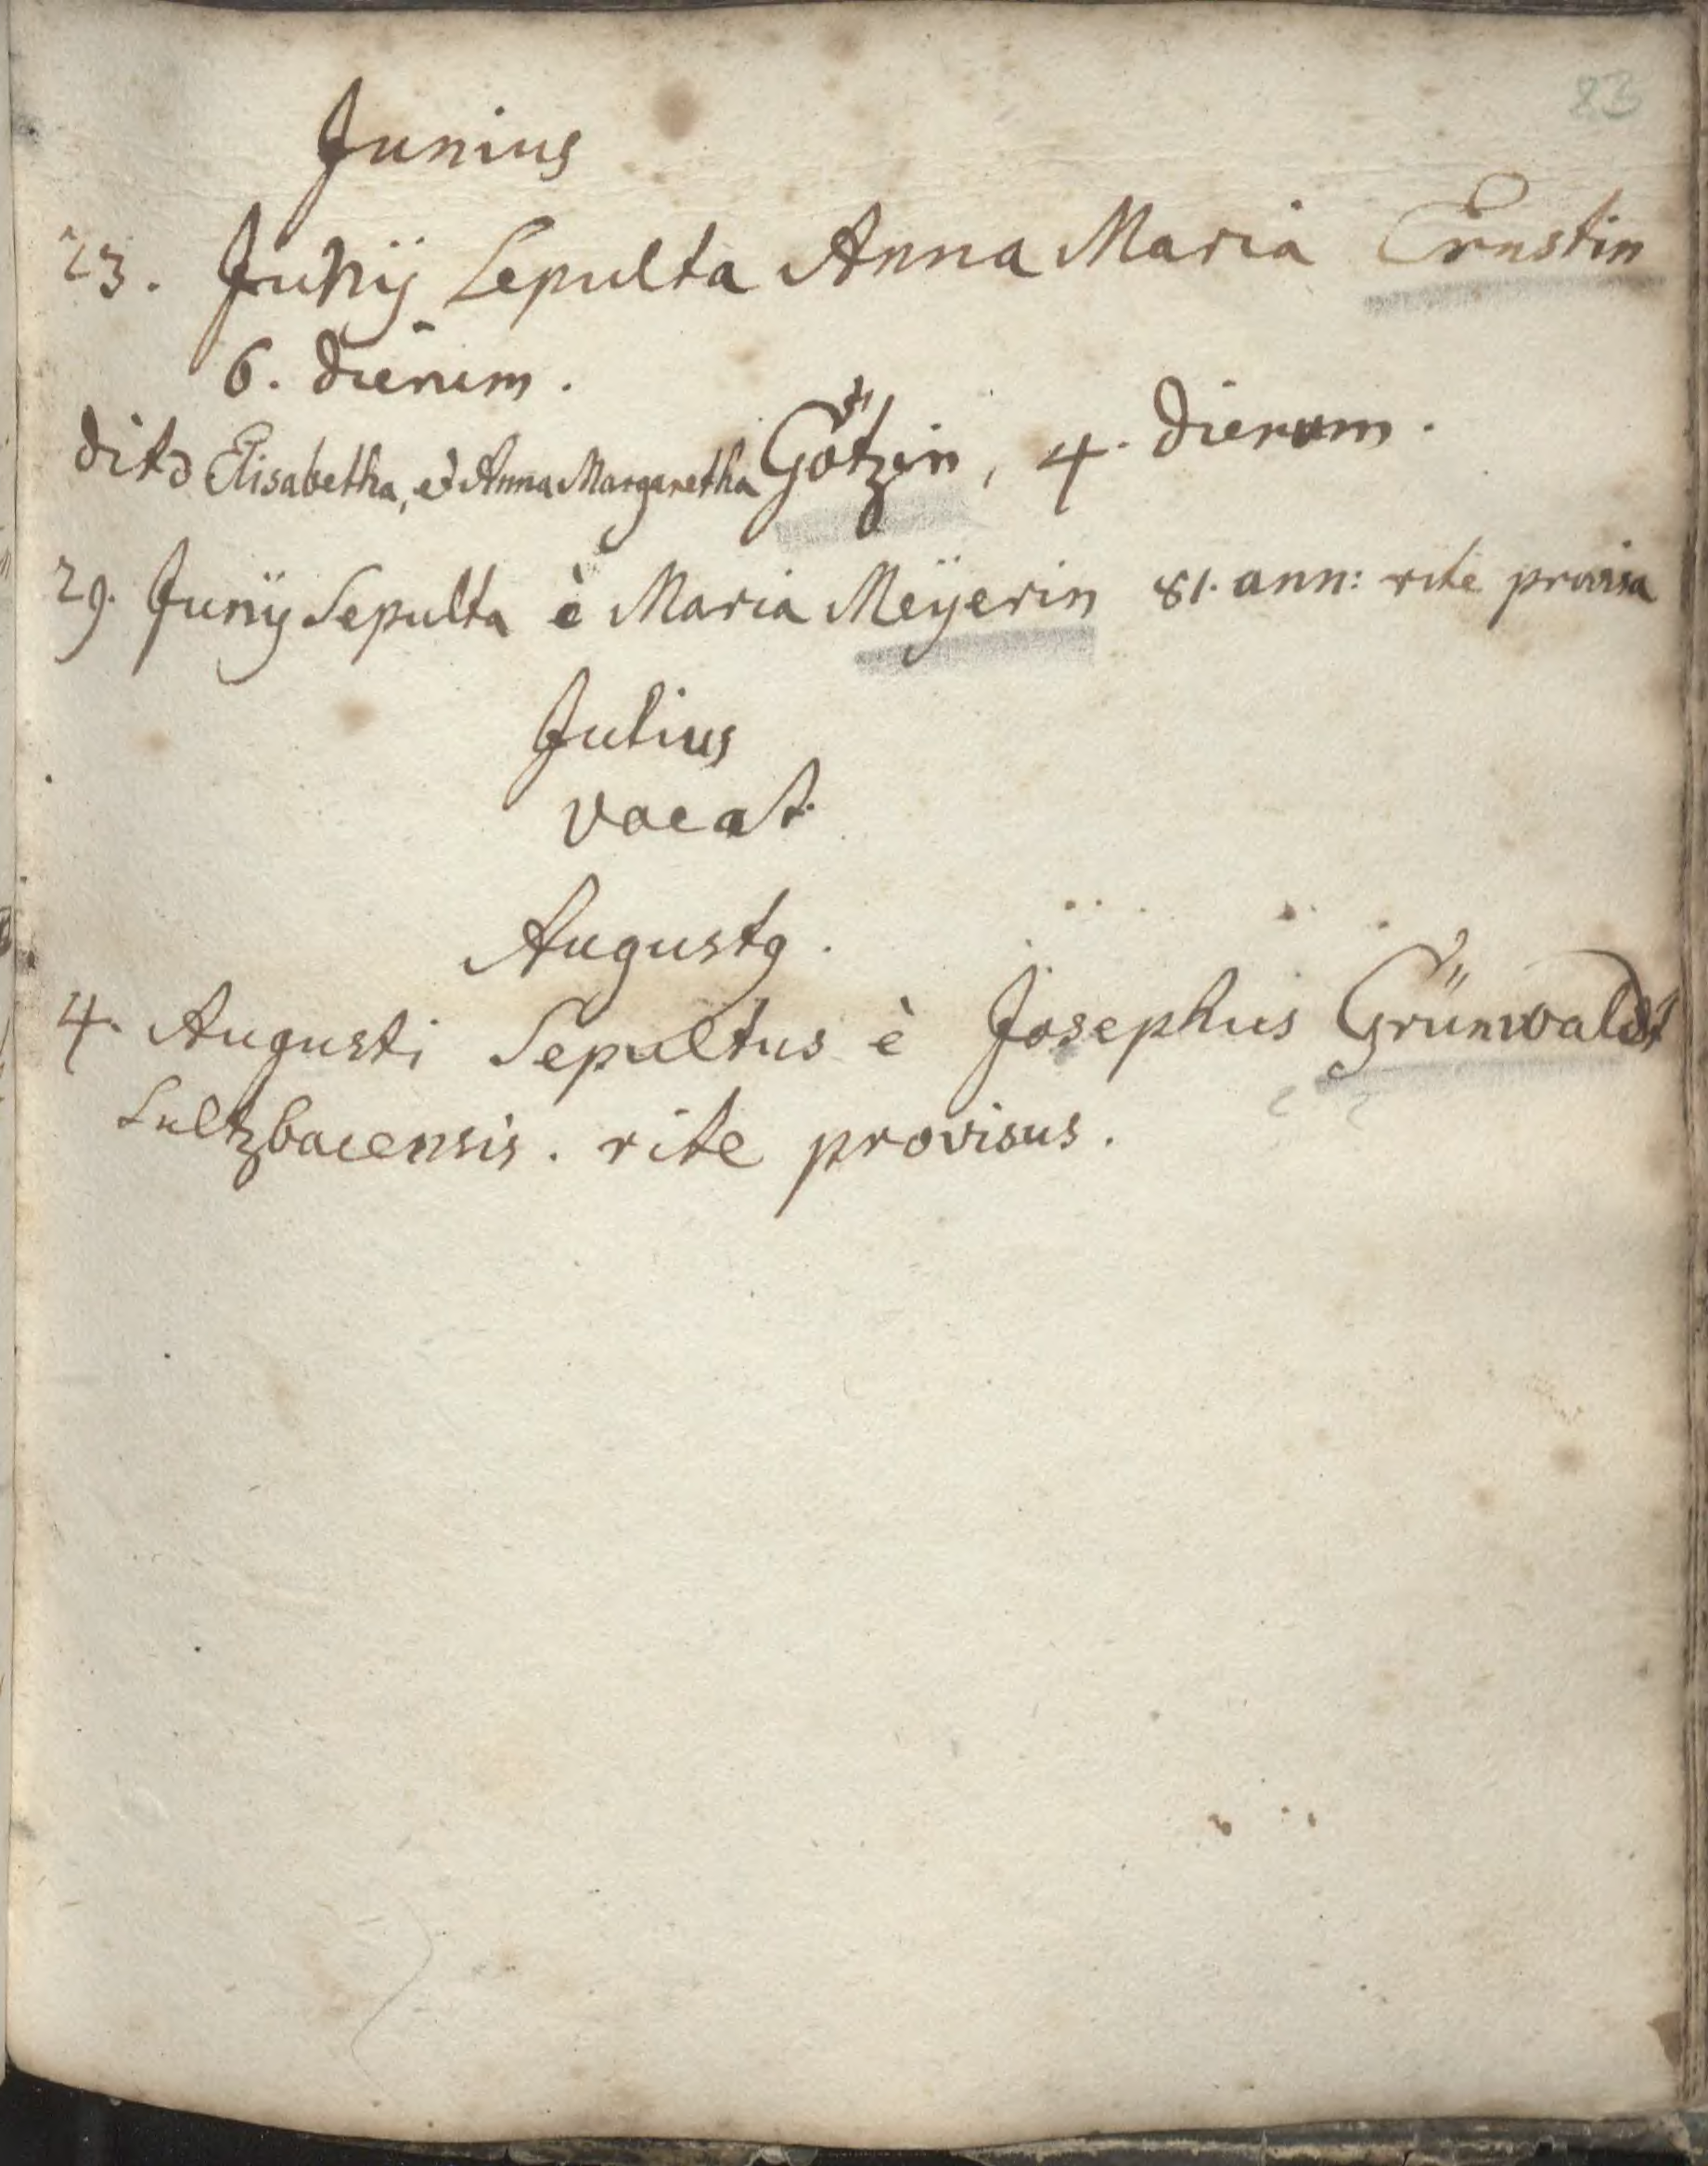 83
Junius
23. Junÿ Sepulta Anna Maria Ernstin
6. dierum.
dito Elisabetha, et Anna Margaretha Götzin, 4. dierum.
29. Junÿ Sepulta è Maria Meÿerin 81. ann: rite provisa
Julius
vacat
Augustg.
4. Augusti Sepultus è Josephus Grünwaldt
Sultzbacensis. rite provisus.